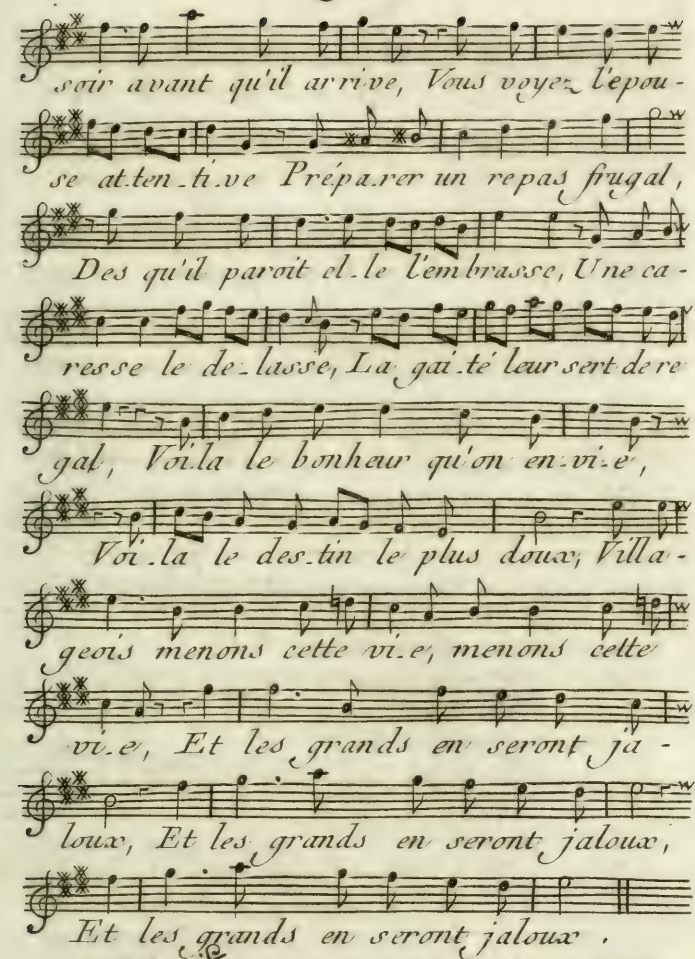 soir avant qu'il arrive, Vous voyez l'epou-
se at-ten-ti-ve Prépa-rer un repas frugal,
Des qu'il paroit el-le l'embrasse, Une ca-
resse le de-lasse, La gai-té leur sert de re
gal, Voi-la le bonheur qu'on en-vi-e,
Voi-la le des-tin le plus doux, Villa-
geois menons cette vi-e, menons cette
vi-e, Et les grands en seront ja-
loux, Et les grands en seront jaloux,
Et les grands en seront jaloux.